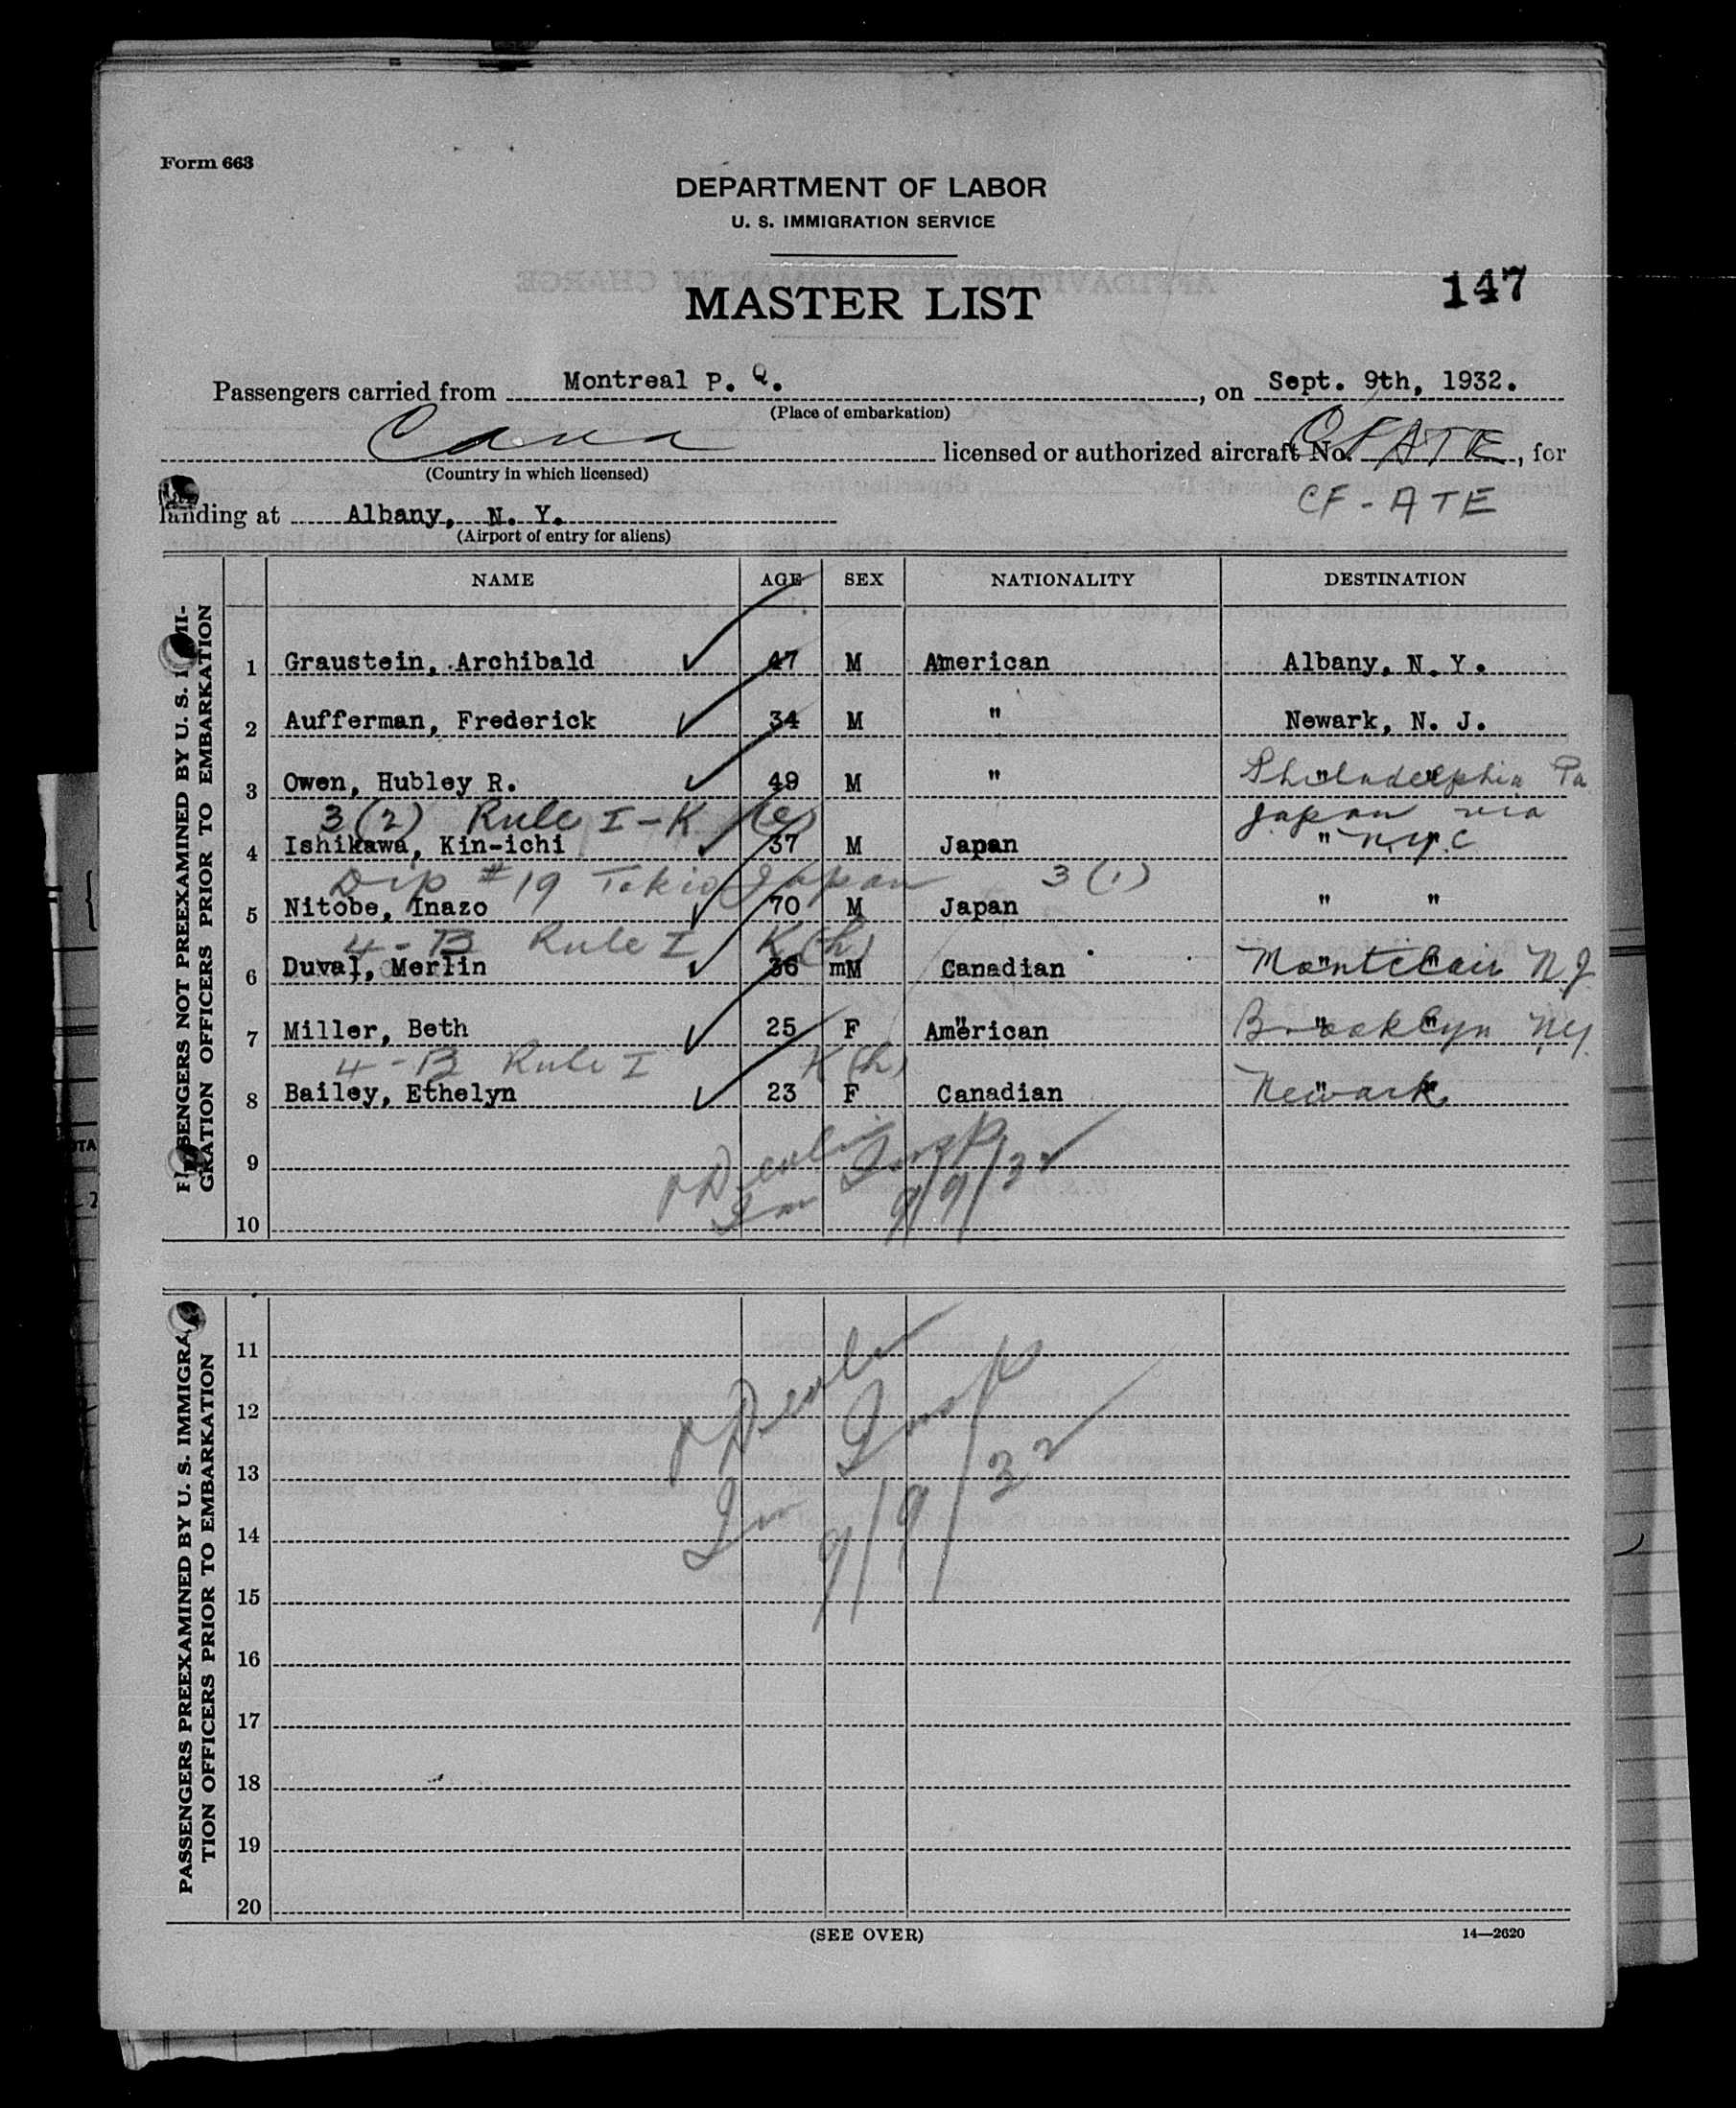 Form 663
DEPARTMENT OF LABOR
U. S. IMMIGRATION SERVICE
147
MASTER LIST
Passengers carried from Montreal P. Q. , on Sept. 9th, 1932.
(Place of embarkation)
Cana licensed or authorized aircraft No. CFATE , for
(Country in which licensed)
CF-ATE
landing at Albany, N. Y.
(Airport of entry for aliens)
NAME AGE SEX NATIONALITY DESTINATION
PASSENGERS NOT PREEXAMINED BY U. S. IMMI-
GRATION OFFICERS PRIOR TO EMBARKATION
1 Graustein, Archibald 47 M American Albany, N. Y.
2 Aufferman, Frederick 34 M " Newark, N. J.
3 Owen, Hubley R. 49 M " " " Philadelphia Pa
3(2) Rule I-K (e) Japan via
4 Ishikawa, Kin-ichi 37 M Japan " " N.Y.C.
Dip #19 Tokio Japan 3(1)
5 Nitobe, Inazo 70 M Japan " "
4-B Rule I K(h)
6 Duval, Merlin 36 mM Canadian " " Montclair N.J.
7 Miller, Beth 25 F American " " Brooklyn NY.
4-B Rule I K(h)
8 Bailey, Ethelyn 23 F Canadian " " Newark
9
Insp
Im 9/9/32
10
PASSENGERS PREEXAMINED BY U. S. IMMIGRA-
TION OFFICERS PRIOR TO EMBARKATION
11
12
Insp
13
Im 9/9/32
14
15
16
17
18
19
20
(SEE OVER)
14—2620